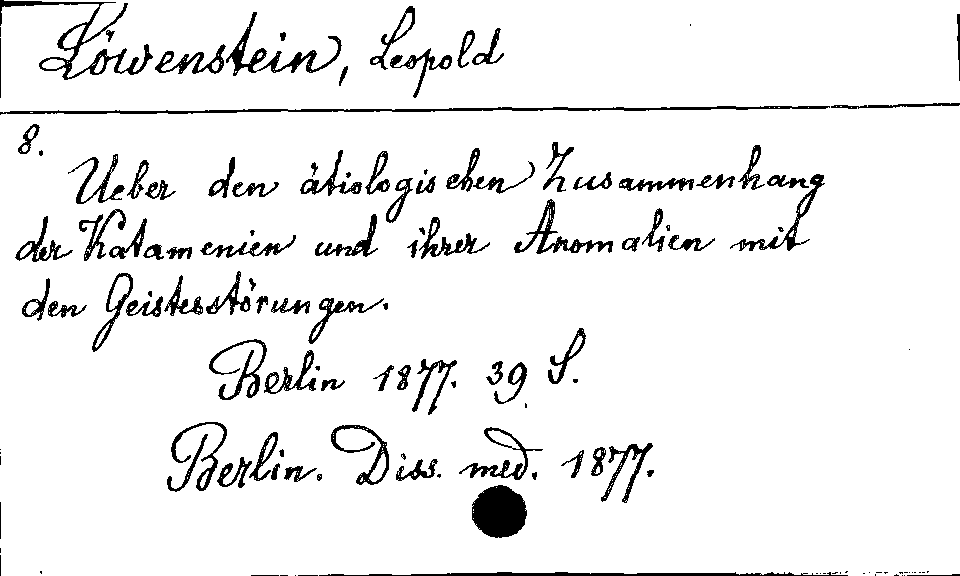 Löwenstein, Leopold
8.
Ueber den ätiologischen Zusammenhang
der Katamenien und ihrer Anomalien mit
den Geistesstörungen.
Berlin 1877. 39 S.
Berlin. Diss. med. 1877.